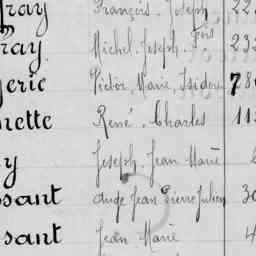 fray François. Joseph 22
fray Michel. Joseph. Fçois 23
gerie Victor Marie Isidore 78
nette René. Charles 11
y Joseph Jean Marie
ssant Ange Jean Pierre Julien 30
sant Jean Marie 4